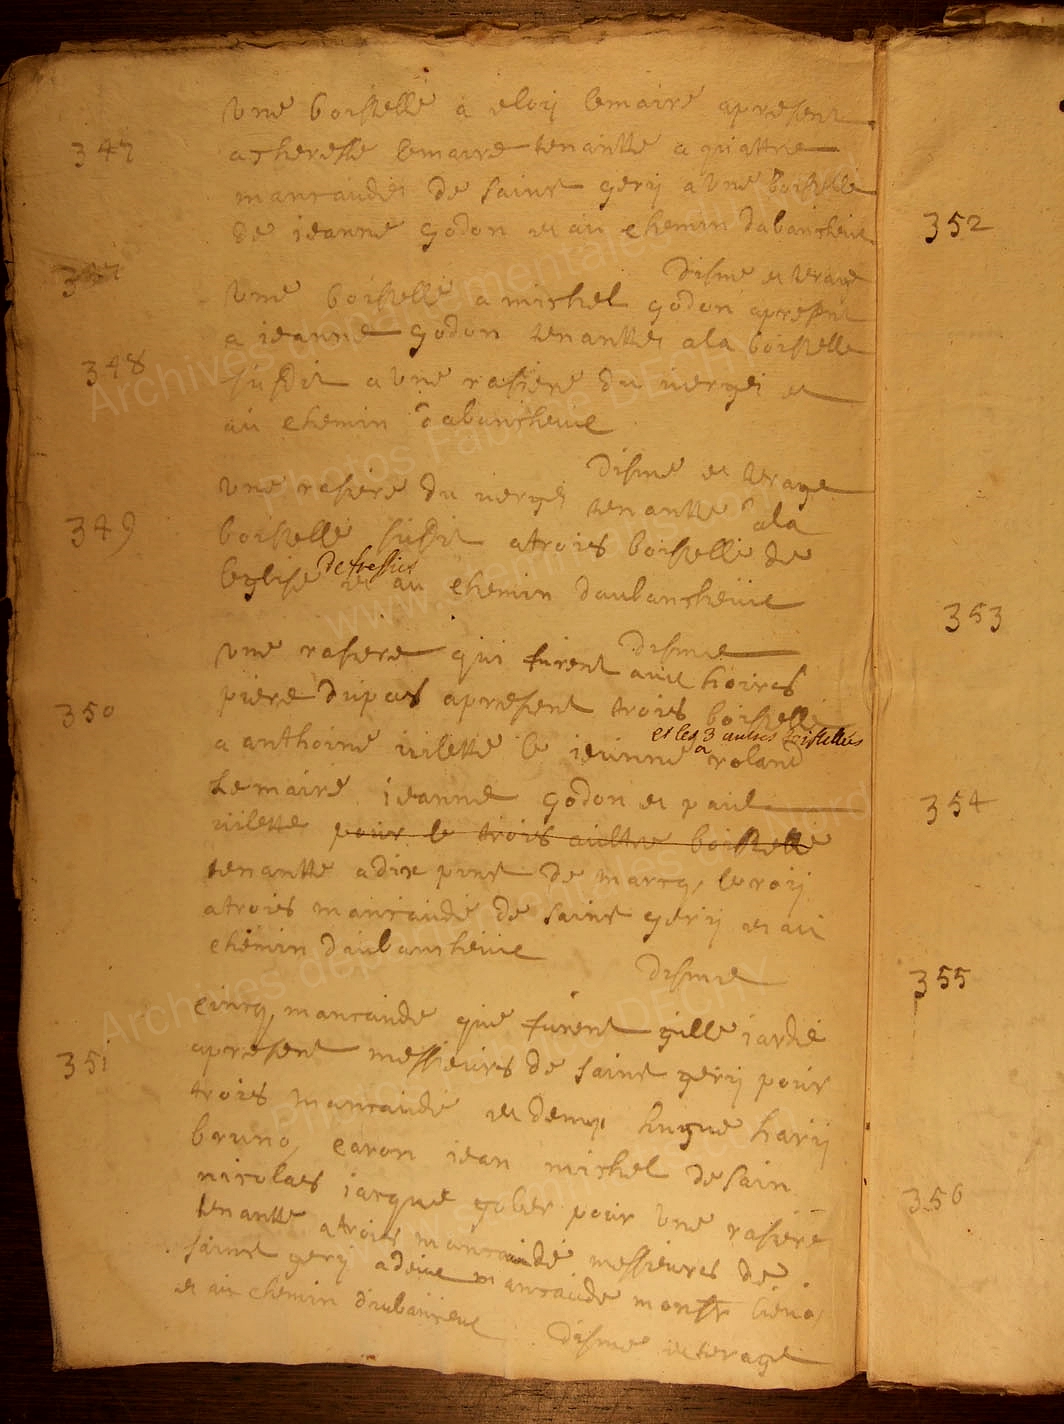 347
Une boistelle a eloy lemaire apresent
a therese lemaire tenantte a quattre
mancaudes de saint gery a une boistelle
de ieanne godon et au chemin dabancheue
disme et terage
347
Une boistelle a michel godon apresent
a ieanne godon tenanttes a la boistelle
348
susdit a une rasiere du et
au chemin dabancheue
disme et terage
Une rasiere du tenantte a la
349
boistelle susdit a trois boistelle de
leglise de fressies et au chemin daubancheüe
disme
Une rasiere qui furent aux hoires
350
piere dupas apresent trois boistelle
et les 3 autres boistelles
a anthoine vilette le ieunne a roland
lemaire ieanne godon et paul
vilette pour le trois aultre boistelle
tenantte a dix pint de marcq leroy
a trois mancaude de saint gery et au
chemin daubancheue
disme
cincq mancaude que furent gille iardé
351
apresent messieurs de saint gery pour
trois mancaude et demy hugue hary
bruno caron iean michel desain
nicolaes iacque gober pour une rasiere
tenantte a trois mancaude messieurs de
saint gery a deüe mancaude
et au chemin daubancheue
disme et terage
352
353
354
355
356